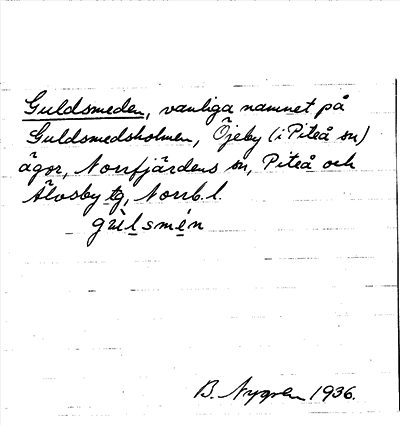 Guldsmeden, vanliga namnet på
Guldsmedsholmen, Öjeby (i Piteå sn)
ägor, Norrfjärdens sn, Piteå och
Älvsby tg, Norrb. l.
gùlsmén
B. Nygren 1936.